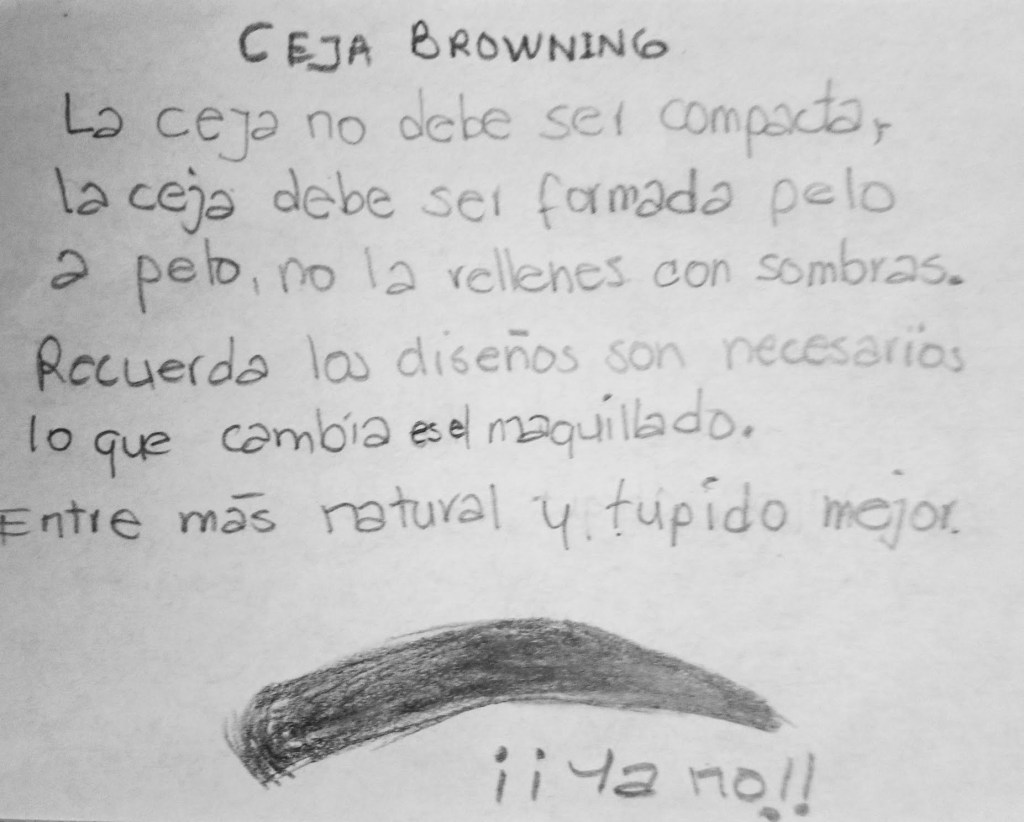 CEJA BROWNING
La ceja no debe ser compacta,
la ceja debe ser formada pelo
a pelo, no la rellenes con sombras.
Recuerda los diseños son necesarios
lo que cambia es el maquillado.
Entre más natural y tupido mejor.
¡¡Ya no!!